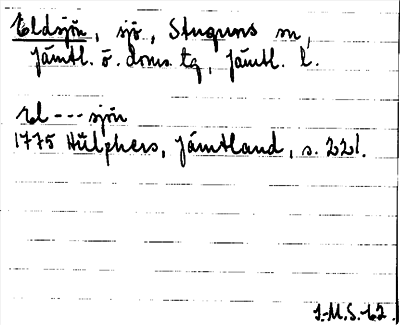 Eldsjön, sjö, Stuguns sn,
Jämtl. ö. doms. tg, Jämtl. l.
El---sjön
1775 Hülphers, Jämtland, s. 221.
I.M.S. 62.